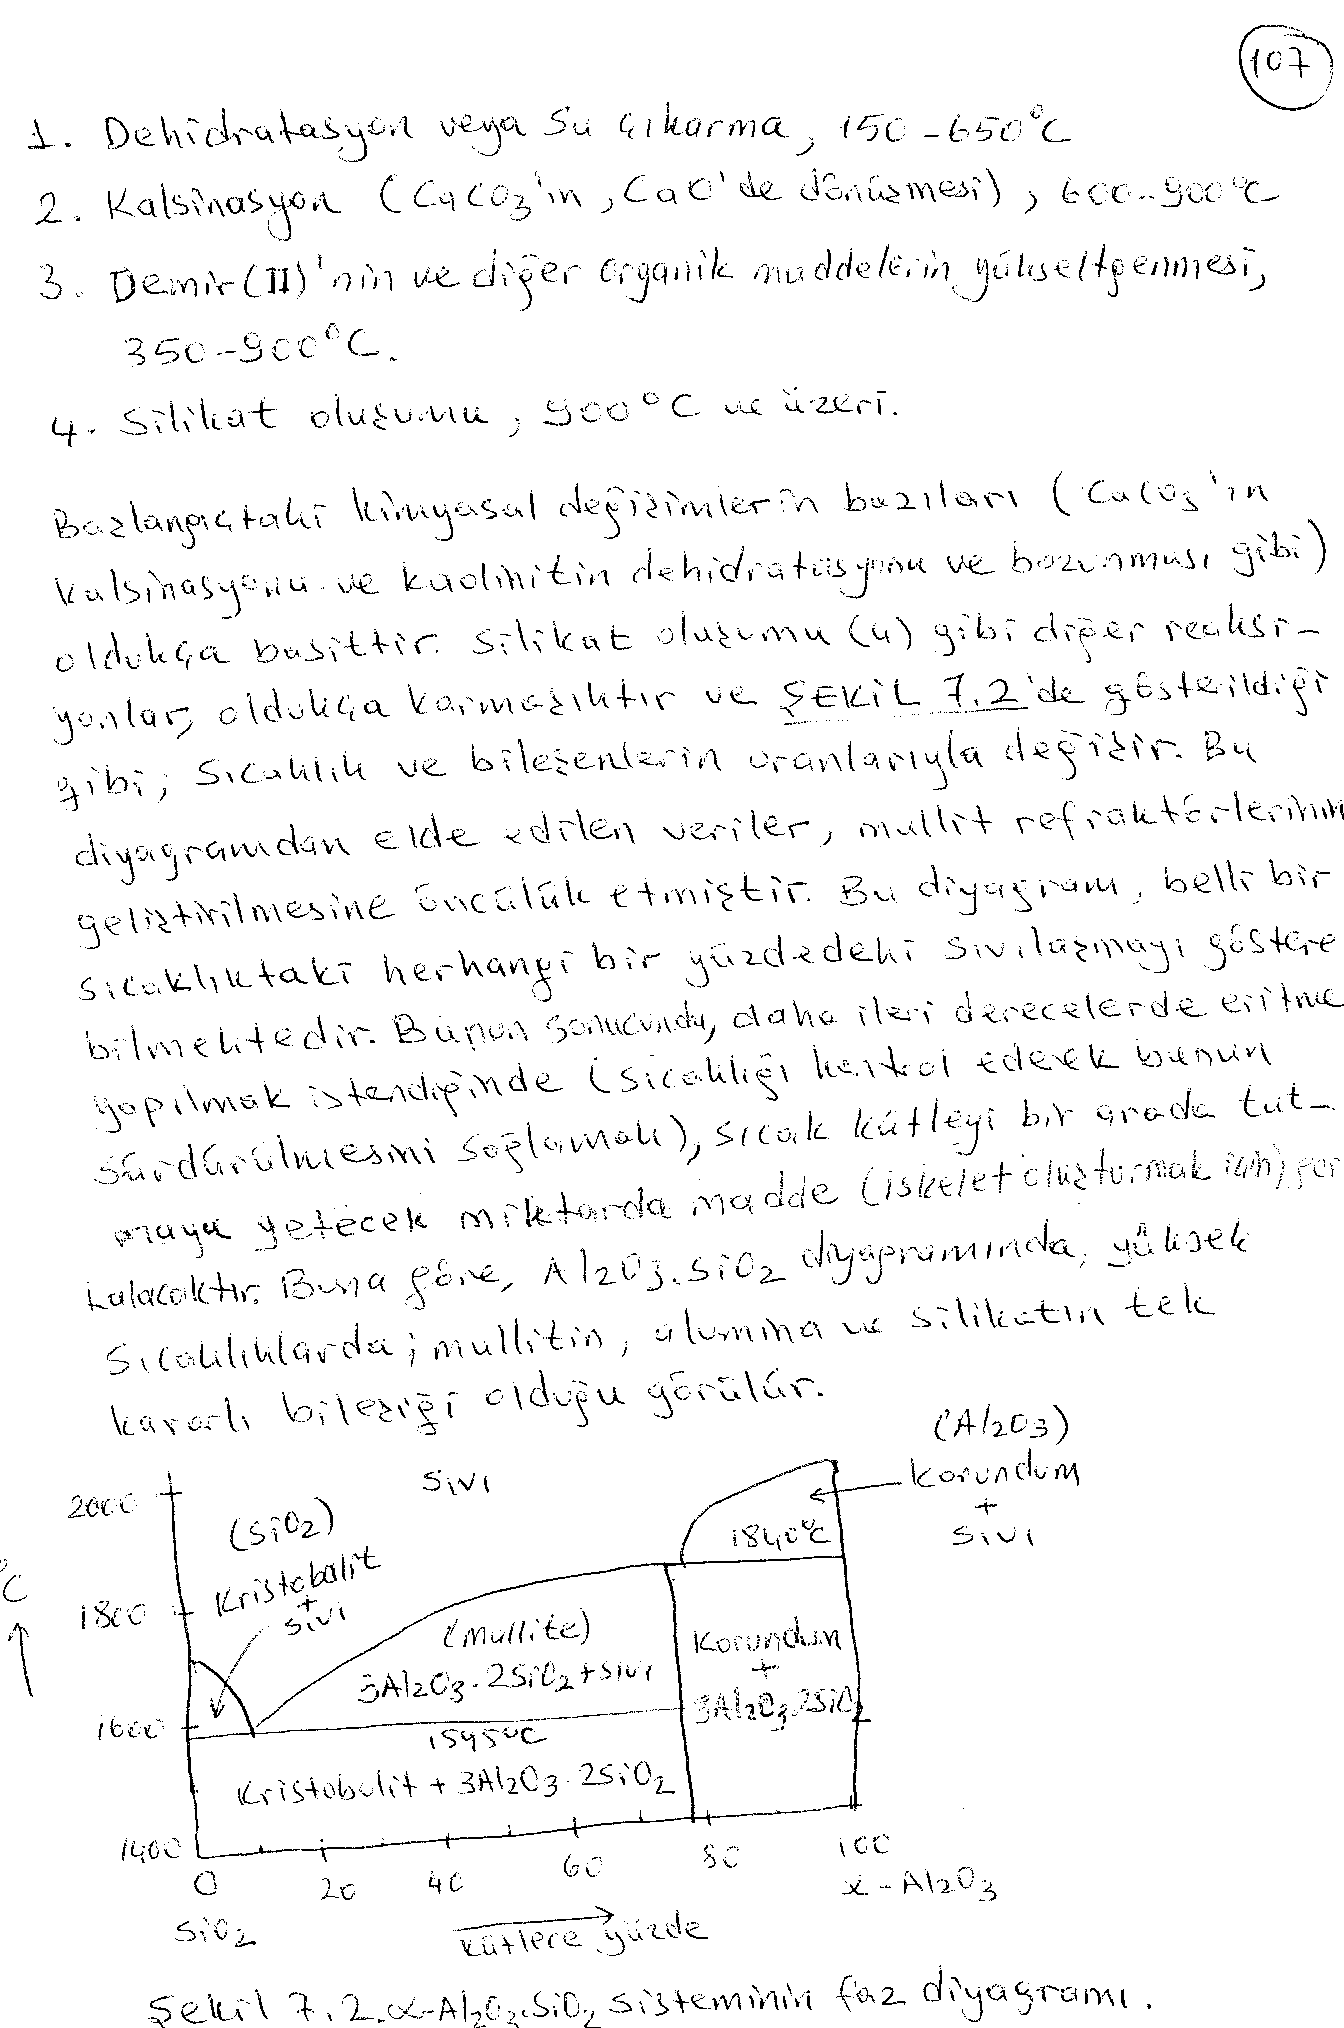 107
1. Dehidratasyon veya su çıkarma, 150-650°C
2. Kalsinasyon (CaCO3'ın, CaO'de dönüşmesi), 600-900°C
3. Demir(II)'nin ve diğer organik maddelerin yükseltgenmesi,
350-900°C.
4. Silikat oluşumu, 900°C ve üzeri.
Başlangıçtaki kimyasal değişimlerin bazıları (CaCO3'ın
kalsinasyonu ve kaolinitin dehidratasyonu ve bozunması gibi)
oldukça basittir. Silikat oluşumu (4) gibi diğer reaksi-
yonlar, oldukça karmaşıktır ve ŞEKİL 7.2'de gösterildiği
gibi; sıcaklık ve bileşenlerin oranlarıyla değişir. Bu
diyagramdan elde edilen veriler, mullit refraktörlerinin
geliştirilmesine öncülük etmiştir. Bu diyagram, belli bir
sıcaklıktaki herhangi bir yüzdedeki sıvılaşmayı göstere
bilmektedir. Bunun sonucunda, daha ileri derecelerde eritme
yapılmak istendiğinde (sıcaklığı kontrol ederek bunun
sürdürülmesini sağlamalı), sıcak kütleyi bir arada tut-
maya yetecek miktarda madde (iskelet oluşturmak için) geri
kalacaktır. Buna göre, Al2O3.SiO2 diyagramında, yüksek
sıcaklıklarda; mullitin, alumina ve silikatın tek
kararlı bileşiği olduğu görülür.
(Al2O3)
Korundum
+
sıvı
sıvı
2000
(SiO2)
Kristobalit
+
sıvı
1840°C
°C
1800
(Mullite)
3Al2O3.2SiO2+sıvı
Korundum
+
3Al2O3.2SiO2
1600
1545°C
Kristobalit + 3Al2O3.2SiO2
1400
0 20 40 60 80 100
SiO2
α-Al2O3
kütlece yüzde
Şekil 7.2. α-Al2O3.SiO2 sisteminin faz diyagramı.